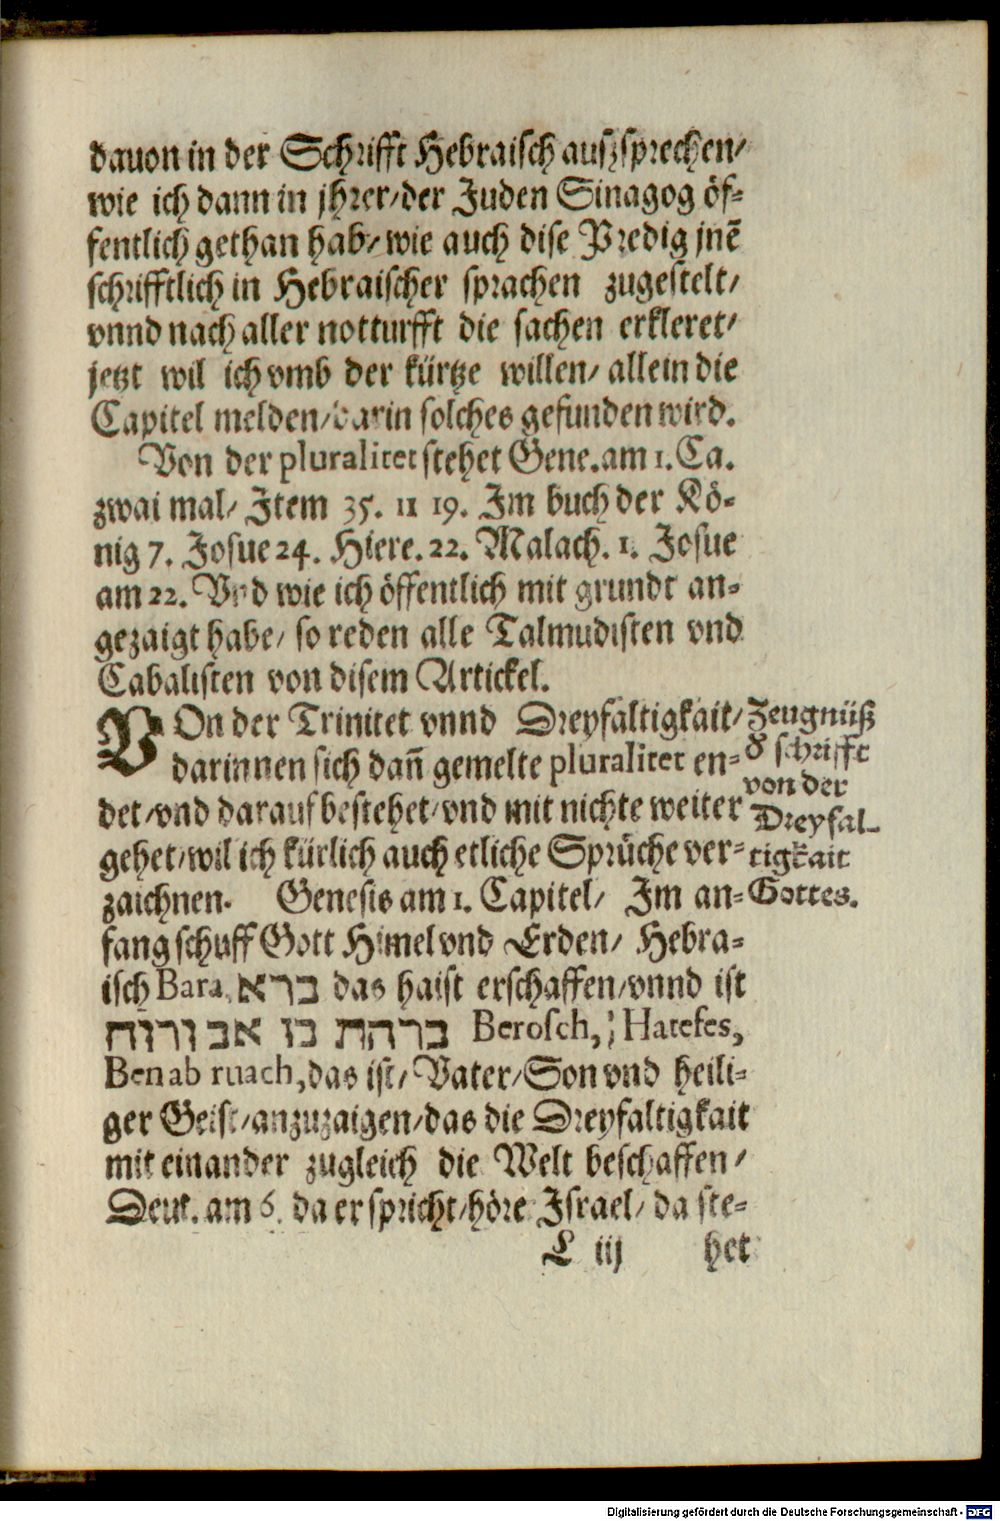 dauon in der Schrifft Hebraisch auszsprechen/
wie ich dann in jhrer/der Juden Sinagog öf-
fentlich gethan hab/wie auch dise Predig jnē
schrifftlich in Hebraischer sprachen zugestelt/
vnnd nach aller notturfft die sachen erkleret/
jetzt wil ich vmb der kürtze willen/ allein die
Capitel melden/darin solches gefunden wird.
Von der pluralitet stehet Gene.am 1.Ca.
zwai mal/ Item 35. 11 19. Im buch der Kö-
nig 7. Josue 24. Hiere.22. Malach. 1. Josue
am 22. Vnd wie ich öffentlich mit grundt an-
gezaigt habe/ so reden alle Talmudisten vnd
Cabalisten von disem Artickel.
VOn der Trinitet vnnd Dreyfaltigkait/
darinnen sich dañ gemelte pluralitet en-
det/vnd darauf bestehet/vnd mit nichte weiter
gehet/wil ich kürlich auch etliche Sprüche ver-
zaichnen. Genesis am 1. Capitel/ Im an-
fang schuff Gott Himel vnd Erden/ Hebra-
isch Bara, ברא das haist erschaffen/vnnd ist
ברהת בו אב ורוח Berosch, Hatefes,
Ben ab ruach,das ist/ Vater/Son vnd heili-
ger Geist/anzuzaigen/das die Dreyfaltigkait
mit einander zugleich die Welt beschaffen/
Deut. am 6. da er spricht/höre Israel/ da ste-
L iij het
Zeugnüß
d' schrifft
von der
Dreyfal-
tigkait
Gottes.
Digitalisierung gefördert durch die Deutsche Forschungsgemeinschaft - DFG